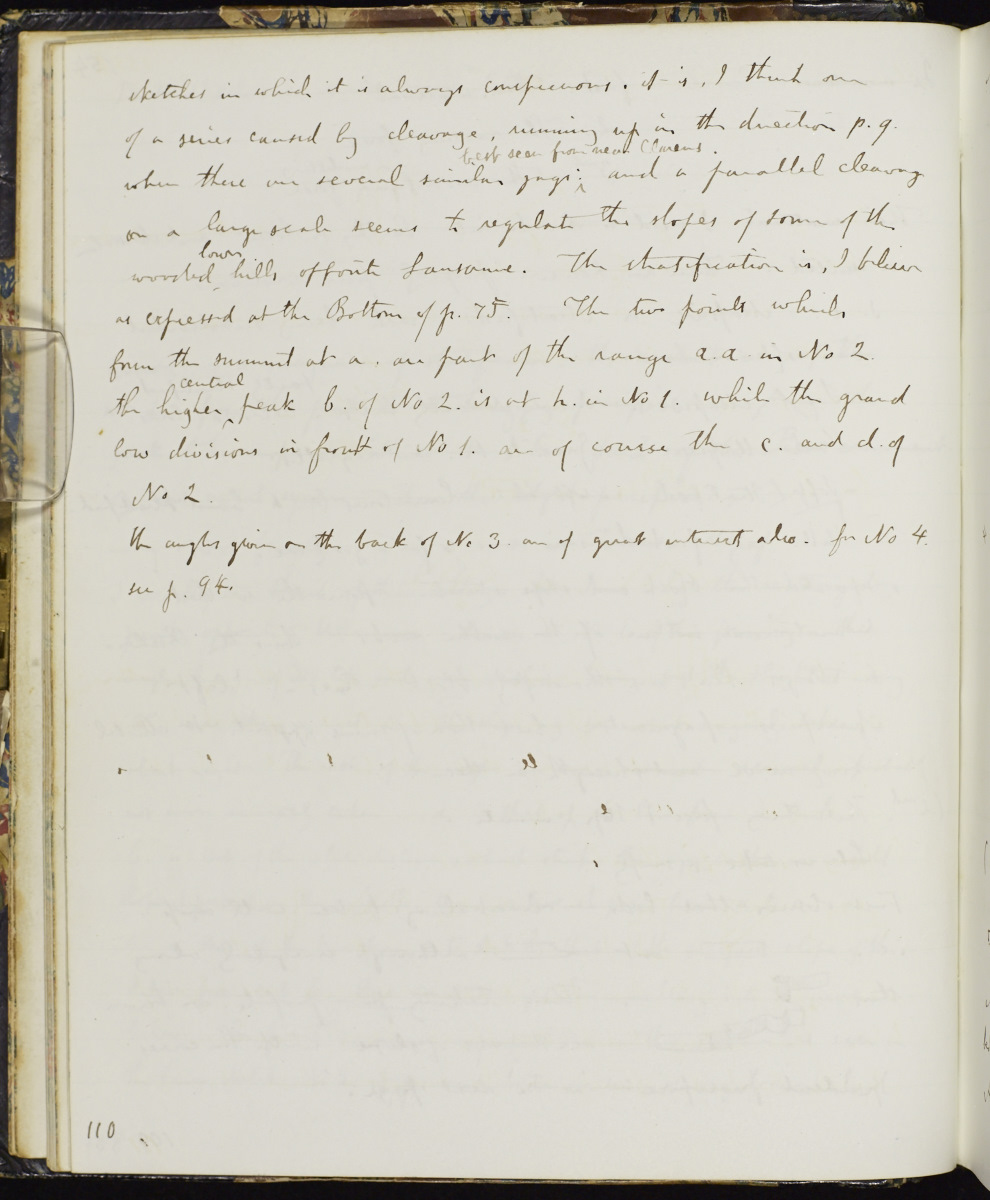 sketches in which it is always conspicuous. it is, I think one
of a series caused by cleavage, running up in the direction p. q.
best seen from near Clarens.
when there are several similar jags; and a parallel cleavage
on a large scale seems to regulate the slopes of some of the
lower
wooded hills opposite Lausanne. The stratification is, I believe
as expressed at the Bottom of p. 75. The two points which
form the summit at a. are part of the range a.a. in No 2.
central
the higher peak b. of No 2. is at h. in No 1. while the grand
low divisions in front of No 1. are of course the c. and d. of
No 2.
the angles given on the back of No 3. are of great interest also. for No 4.
see p. 94.
110